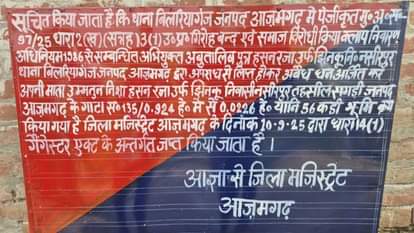 सूचित किया जाता है कि थाना बिलरियागंज जनपद आज़मगढ़ मे पंजीकृत मु० अ० स०
97/25 धारा 2(ख)(सत्रह) 3(1) उ० प्र० गिरोह बन्द एवं समाज विरोधी क्रिया कलाप निवारण
अधिनियम 1986 से सम्बन्धित अभियुक्त अबुतालिब पुत्र हसन रजा उर्फ झिनकू नि० नसीरपुर
थाना बिलरियागंज जनपद आज़मगढ़ द्वारा अपराध से लिप्त होकर अवैध धन अर्जित कर
अपनी माता उम्मतुन निशा हसन रजा उर्फ झिनकू निवासी नसीरपुर तहसील सगड़ी जनपद
आज़मगढ़ के गाटा स० 135/0.924 हे० मे स 0.0226 हे० यानि 56 कड़ी भूमि क्रय
किया गया है जिला मजिस्ट्रेट आज़मगढ़ के दिनांक 10-9-25 द्वारा धारा 14(1)
गैंगेस्टर एक्ट के अन्तर्गत जप्त किया जाता है ।
आज्ञा से जिला मजिस्ट्रेट
आज़मगढ़